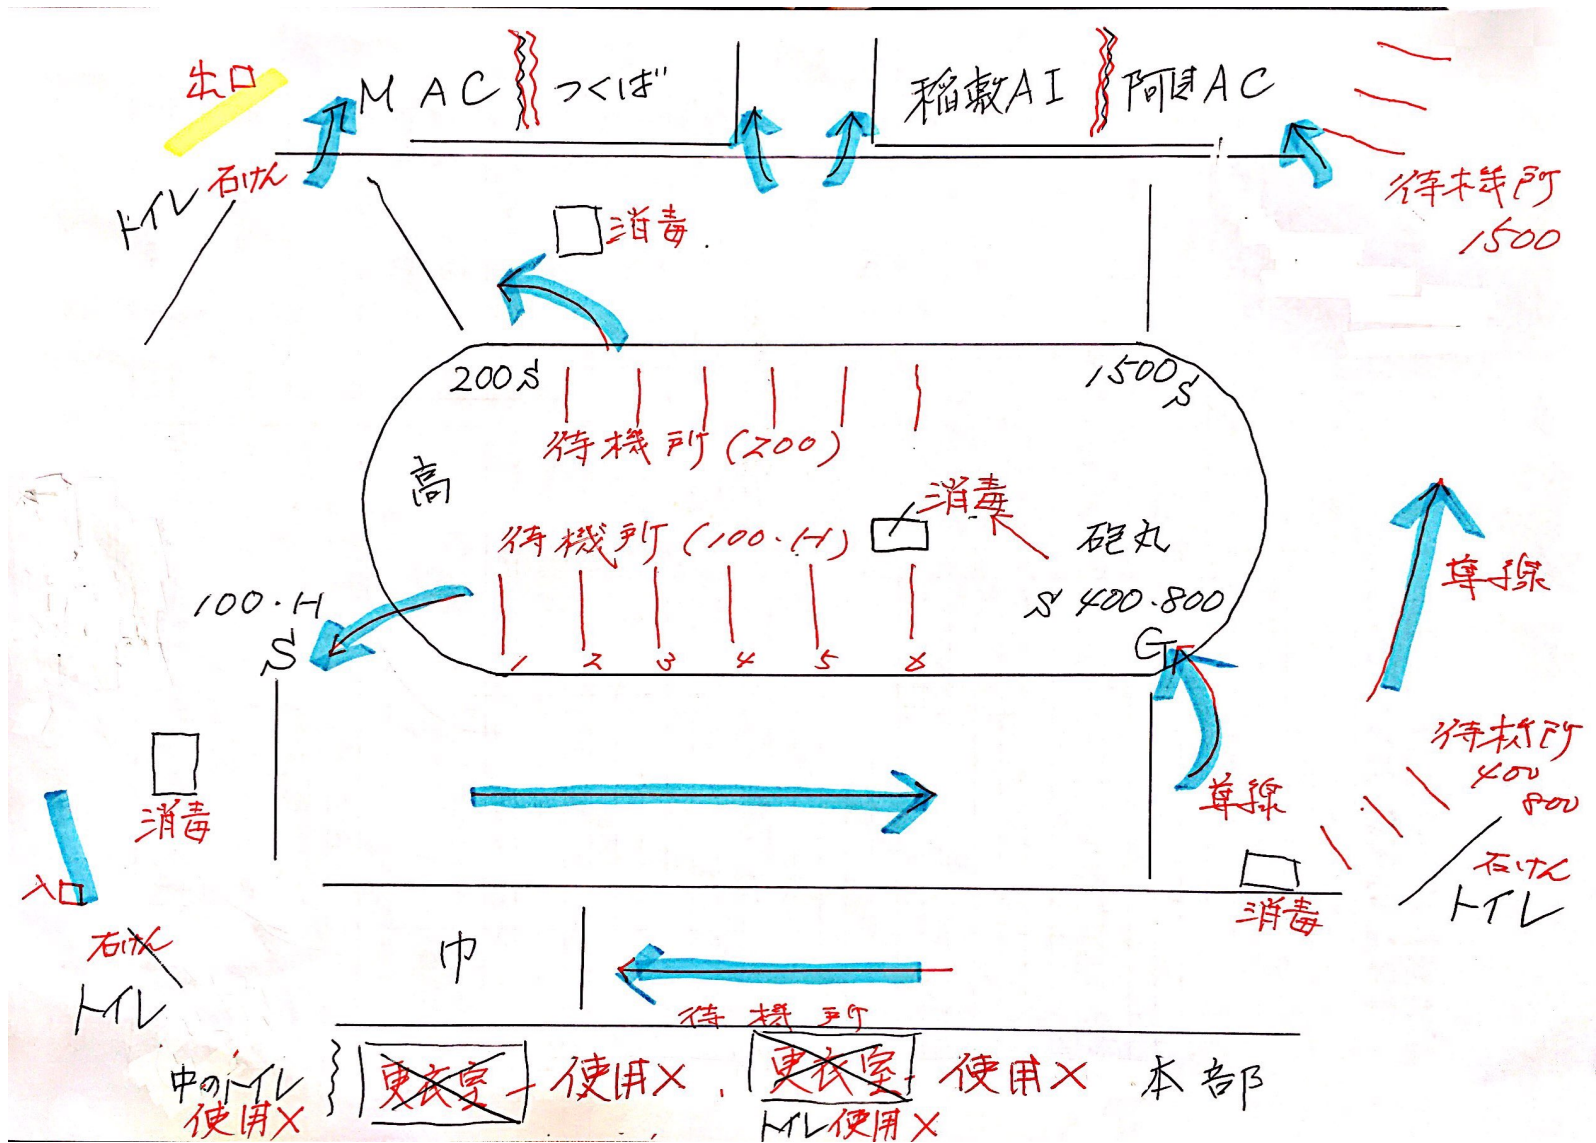 出口
MAC
つくば
稲敷AI
阿見AC
トイレ
石けん
消毒
待機所
1500
200S
1500S
待機所(200)
高
消毒
待機所(100・H)
砲丸
100・H
S
S 400・800
G
1 2 3 4 5 6
導線
待機所
400
800
消毒
導線
入口
石けん
トイレ
消毒
石けん
トイレ
巾
待機所
中のトイレ
使用X
更衣室
使用X
更衣室
使用X
トイレ使用X
本部